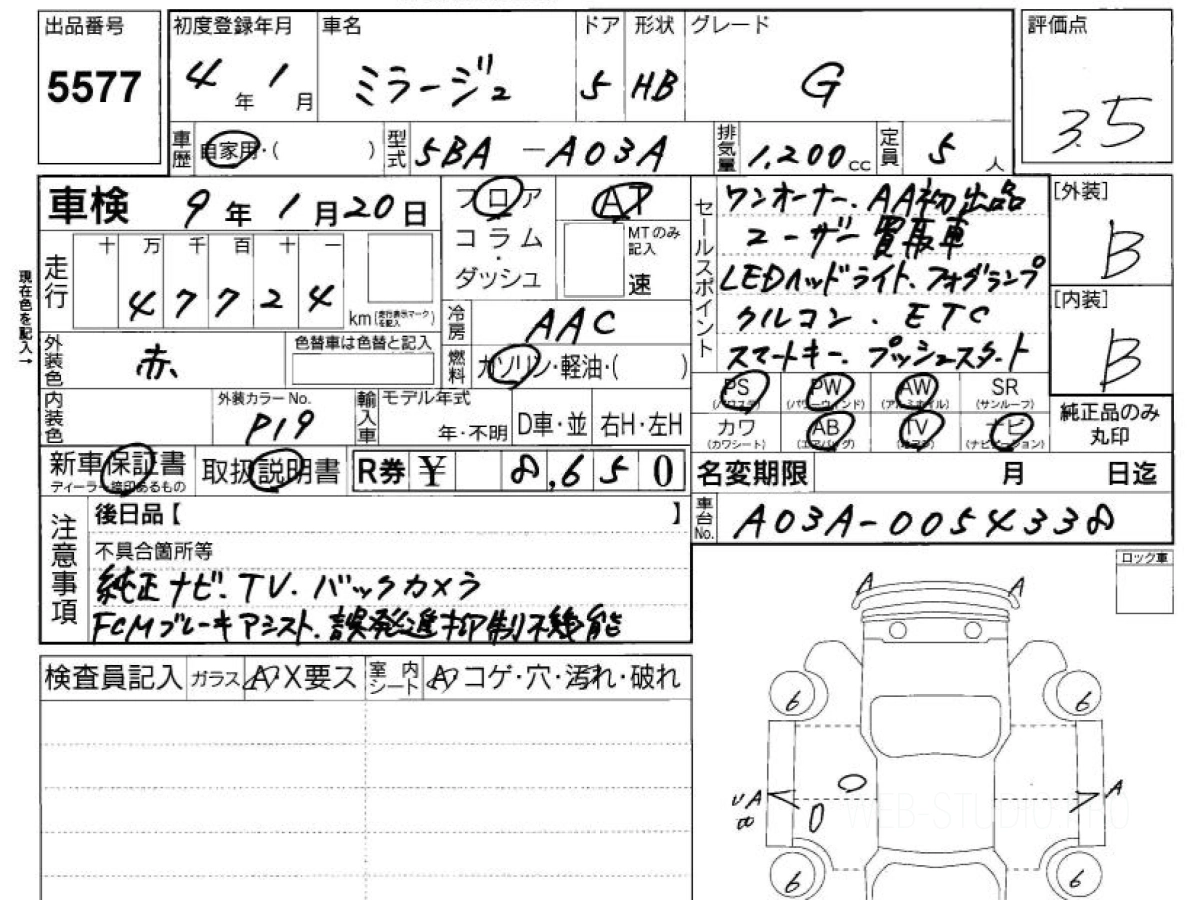 出品番号 初度登録年月 車名 ドア 形状 グレード 評価点
5577 4年 1月 ミラージュ 5 HB G 3.5
車歴 自家用・( ) 型式 5BA-A03A 排気量 1,200cc 定員 5人
車検 9年 1月 20日 フロア AT セールスポイント ワンオーナー、AA初出品 [外装]
ユーザー買取車 B
コラム・ダッシュ MTのみ記入 速
現在色を記入→
走行 十 万 千 百 十 一
4 7 7 2 4 km (走行表示マークを記入)
LEDヘッドライト、フォグランプ [内装]
冷房 AAC クルコン、ETC B
外装色 赤 色替車は色替と記入 燃料 ガソリン・軽油・( ) スマートキー、プッシュスタート
PS (パワステ) PW (パワーウインド) AW (アルミホイル) SR (サンルーフ) 純正品のみ丸印
内装色 外装カラーNo. P19 輸入車 モデル年式 年・不明 D車・並 右H・左H カワ (カワシート) AB (エアバッグ) TV ナビ (ナビゲーション)
新車保証書 ディーラー捺印あるもの 取扱説明書 R券 ¥ 8,650 名変期限 月 日迄
注意事項 後日品【 】 車台No. A03A-0054338
不具合箇所等 ロック車
純正ナビ、TV、バックカメラ
FCMブレーキアシスト、誤発進抑制機能
A A
検査員記入 ガラス A X要ス 室内シート A コゲ・穴・汚れ・破れ
6 6
A A
WEB-STUDIO.PRO
6 6